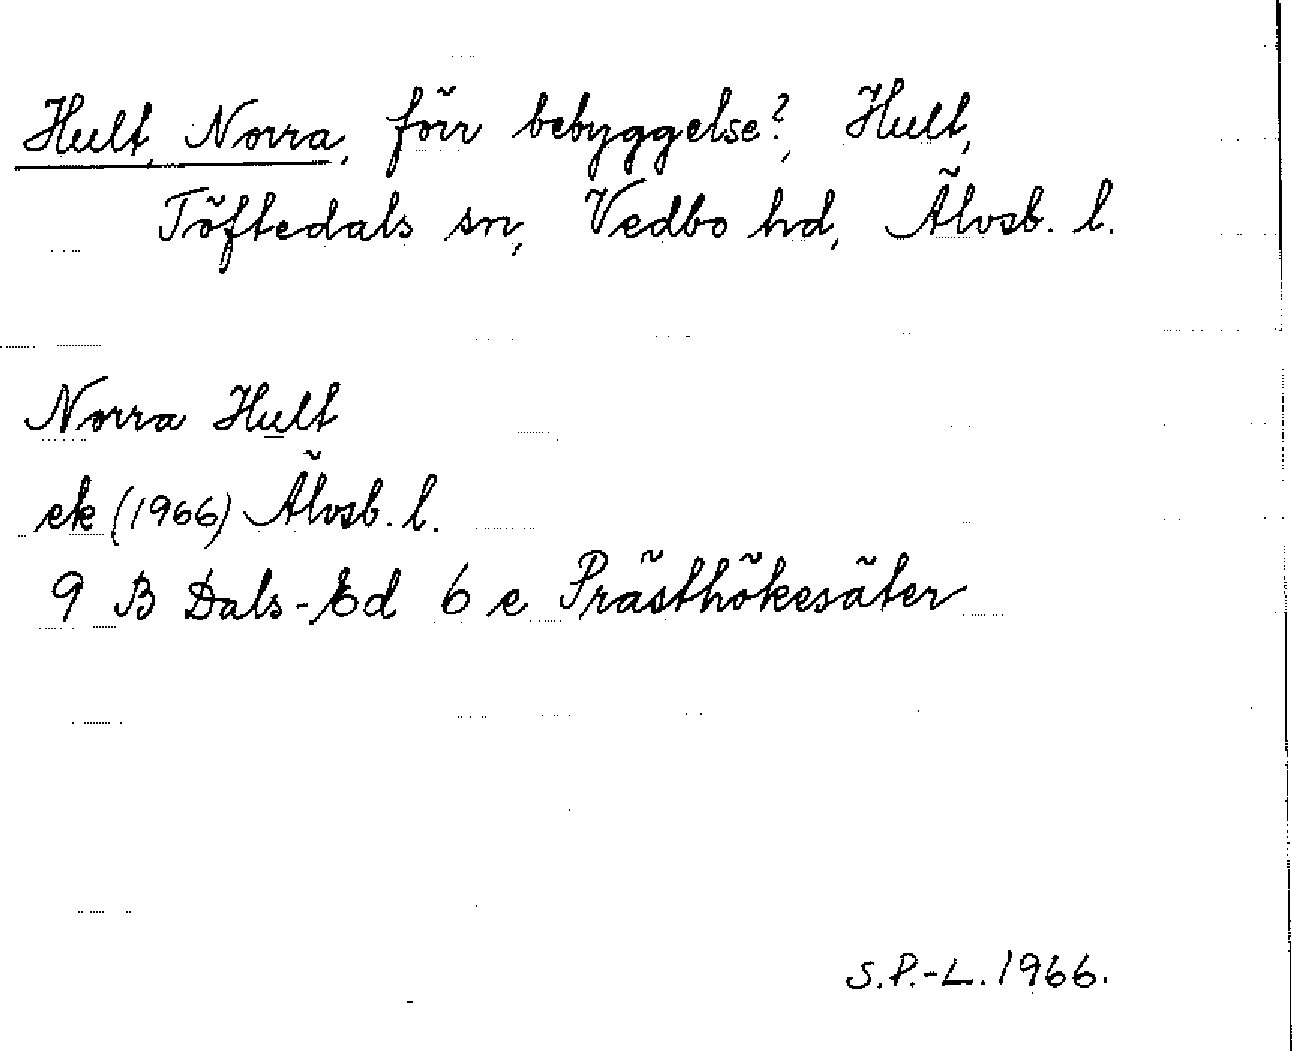 Hult, Norra, förr bebyggelse?, Hult,
Töftedals sn, Vedbo hd, Älvsb. l.
Norra Hult
ek (1966) Älvsb. l.
9 B Dals-Ed 6 e Prästhökesäter
S.P.-L. 1966.